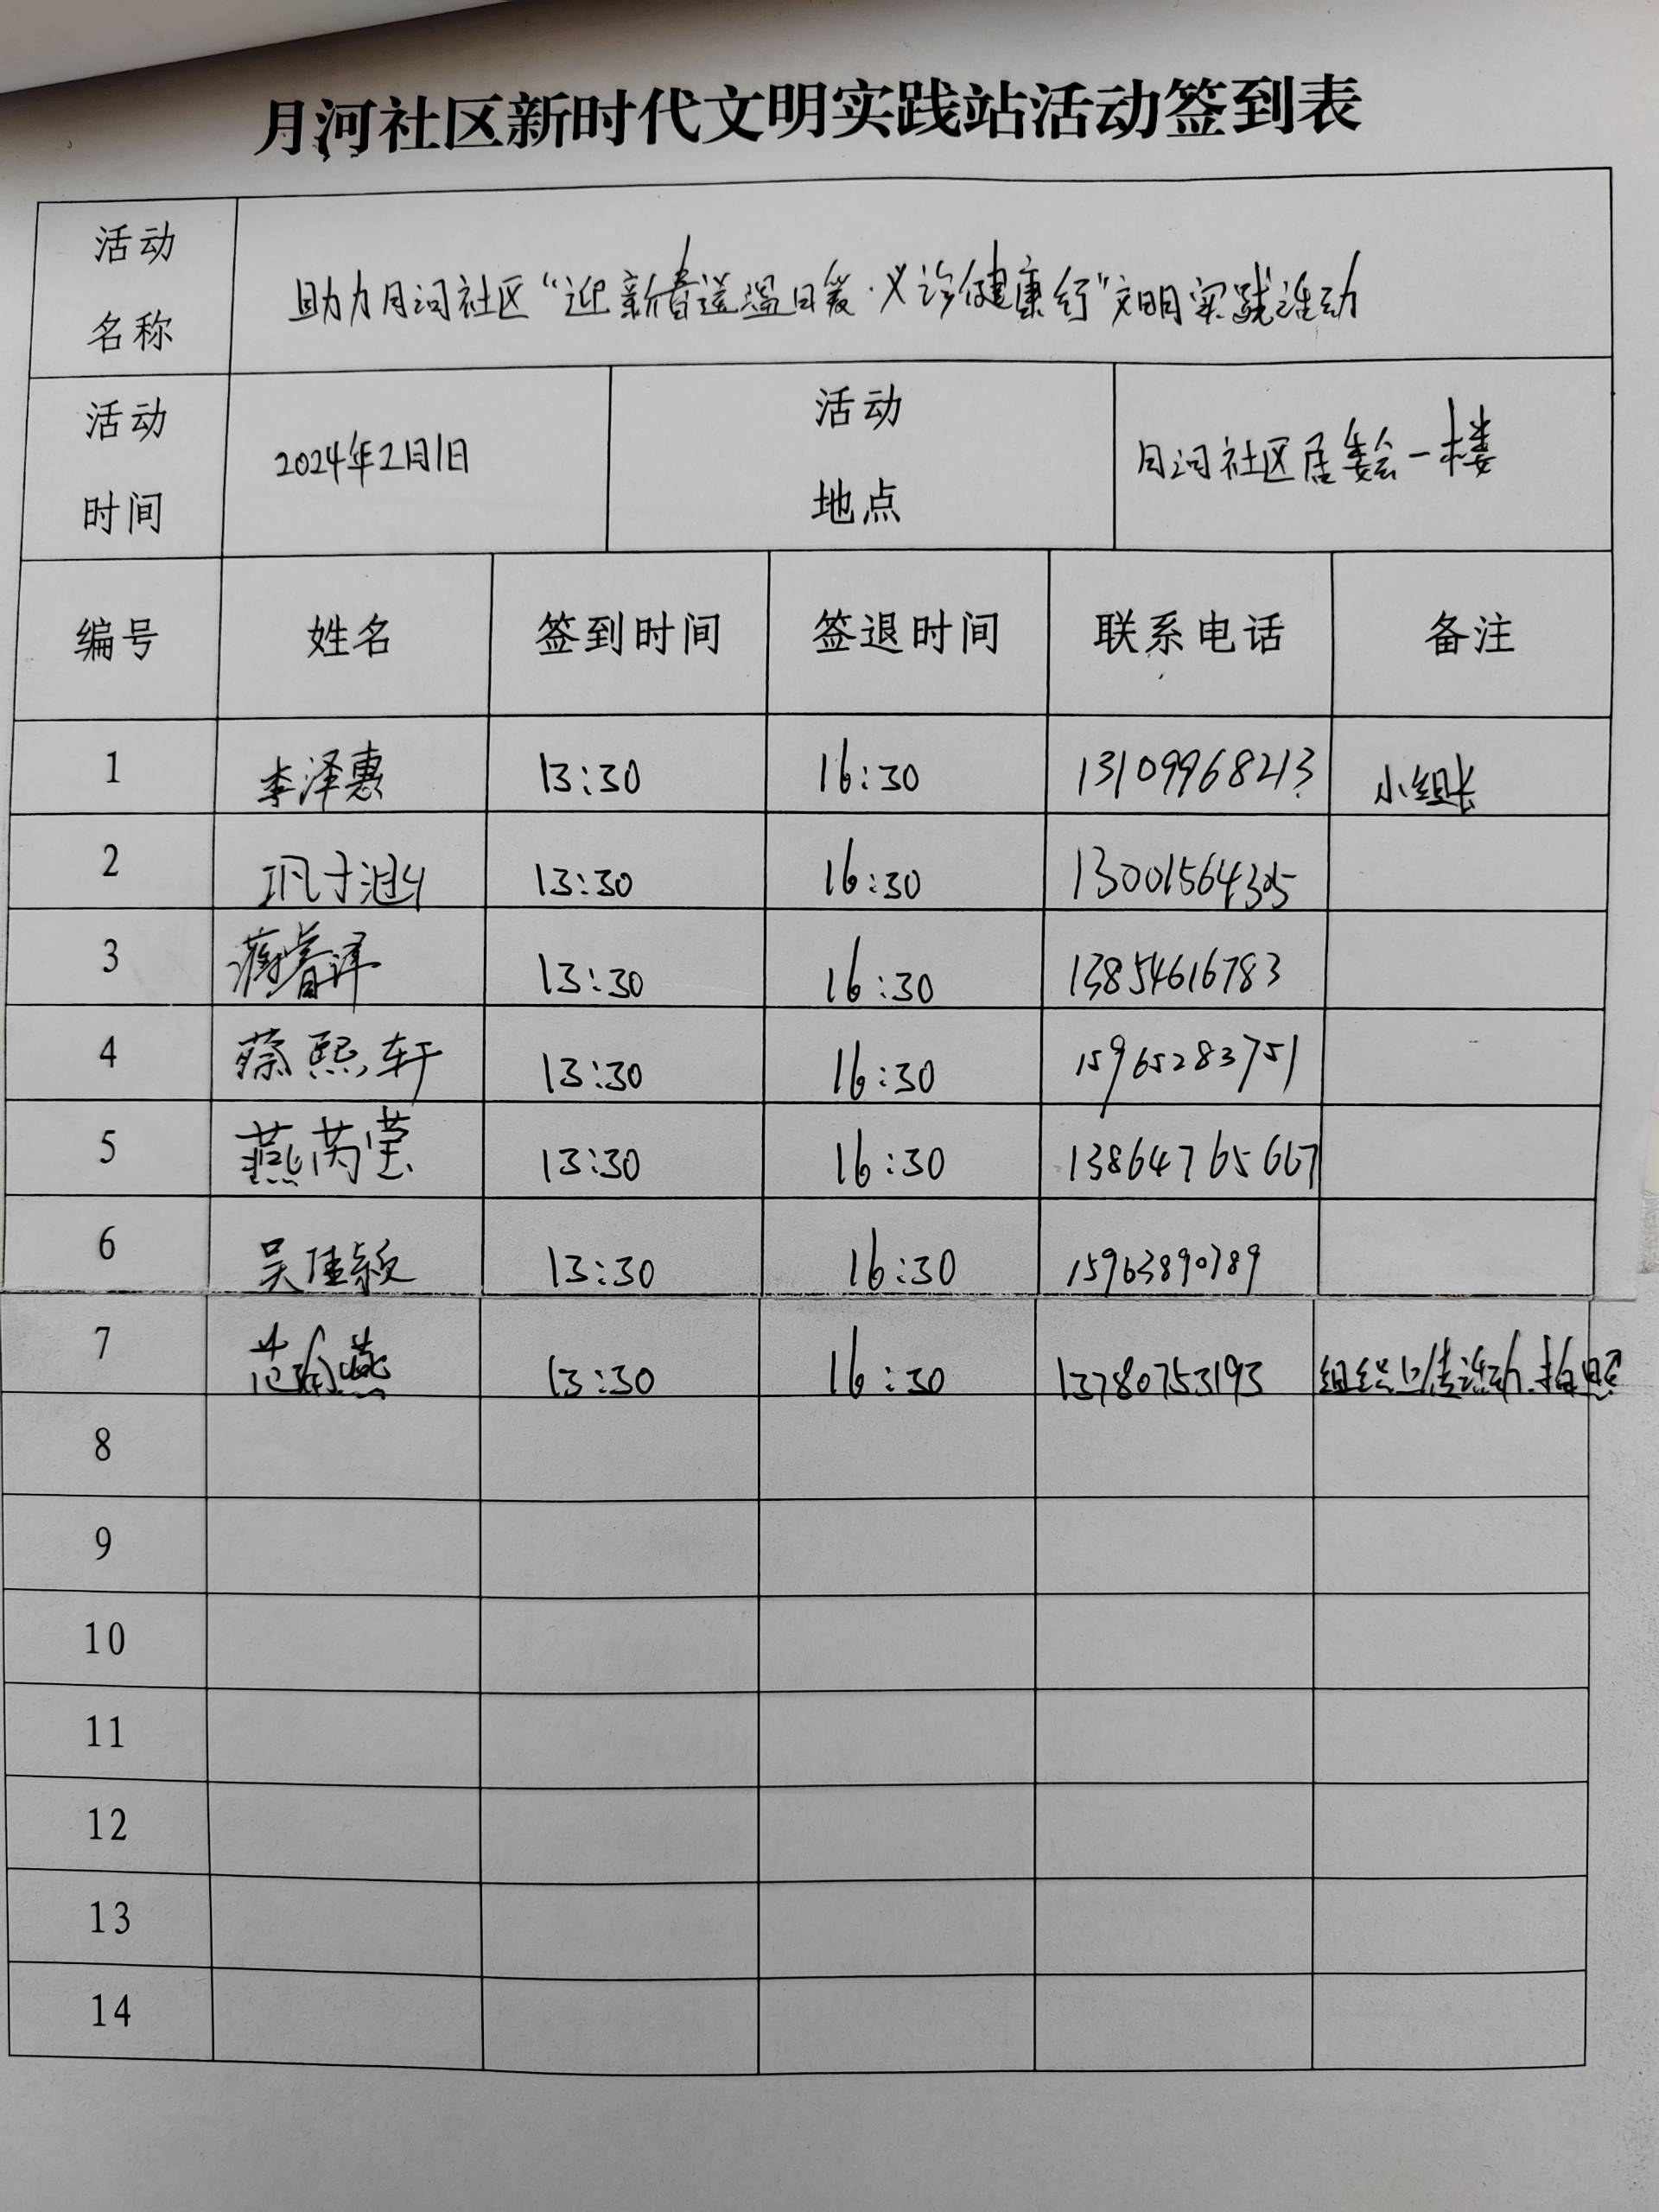 月河社区新时代文明实践站活动签到表
活动名称 助力月河社区“迎新春送温暖·义诊健康行”文明实践活动
活动时间 2024年2月1日 活动地点 月河社区居委会一楼
编号 姓名 签到时间 签退时间 联系电话 备注
1 李泽惠 13:30 16:30 13109968213 小组长
2 13:30 16:30 13001564305
3 蒋睿泽 13:30 16:30 13854616783
4 蔡熙轩 13:30 16:30 15965283751
5 燕芮莹 13:30 16:30 13864765667
6 吴佳颖 13:30 16:30 15963890789
7 范 燕 13:30 16:30 13780753193 组织 活动.拍照
8
9
10
11
12
13
14